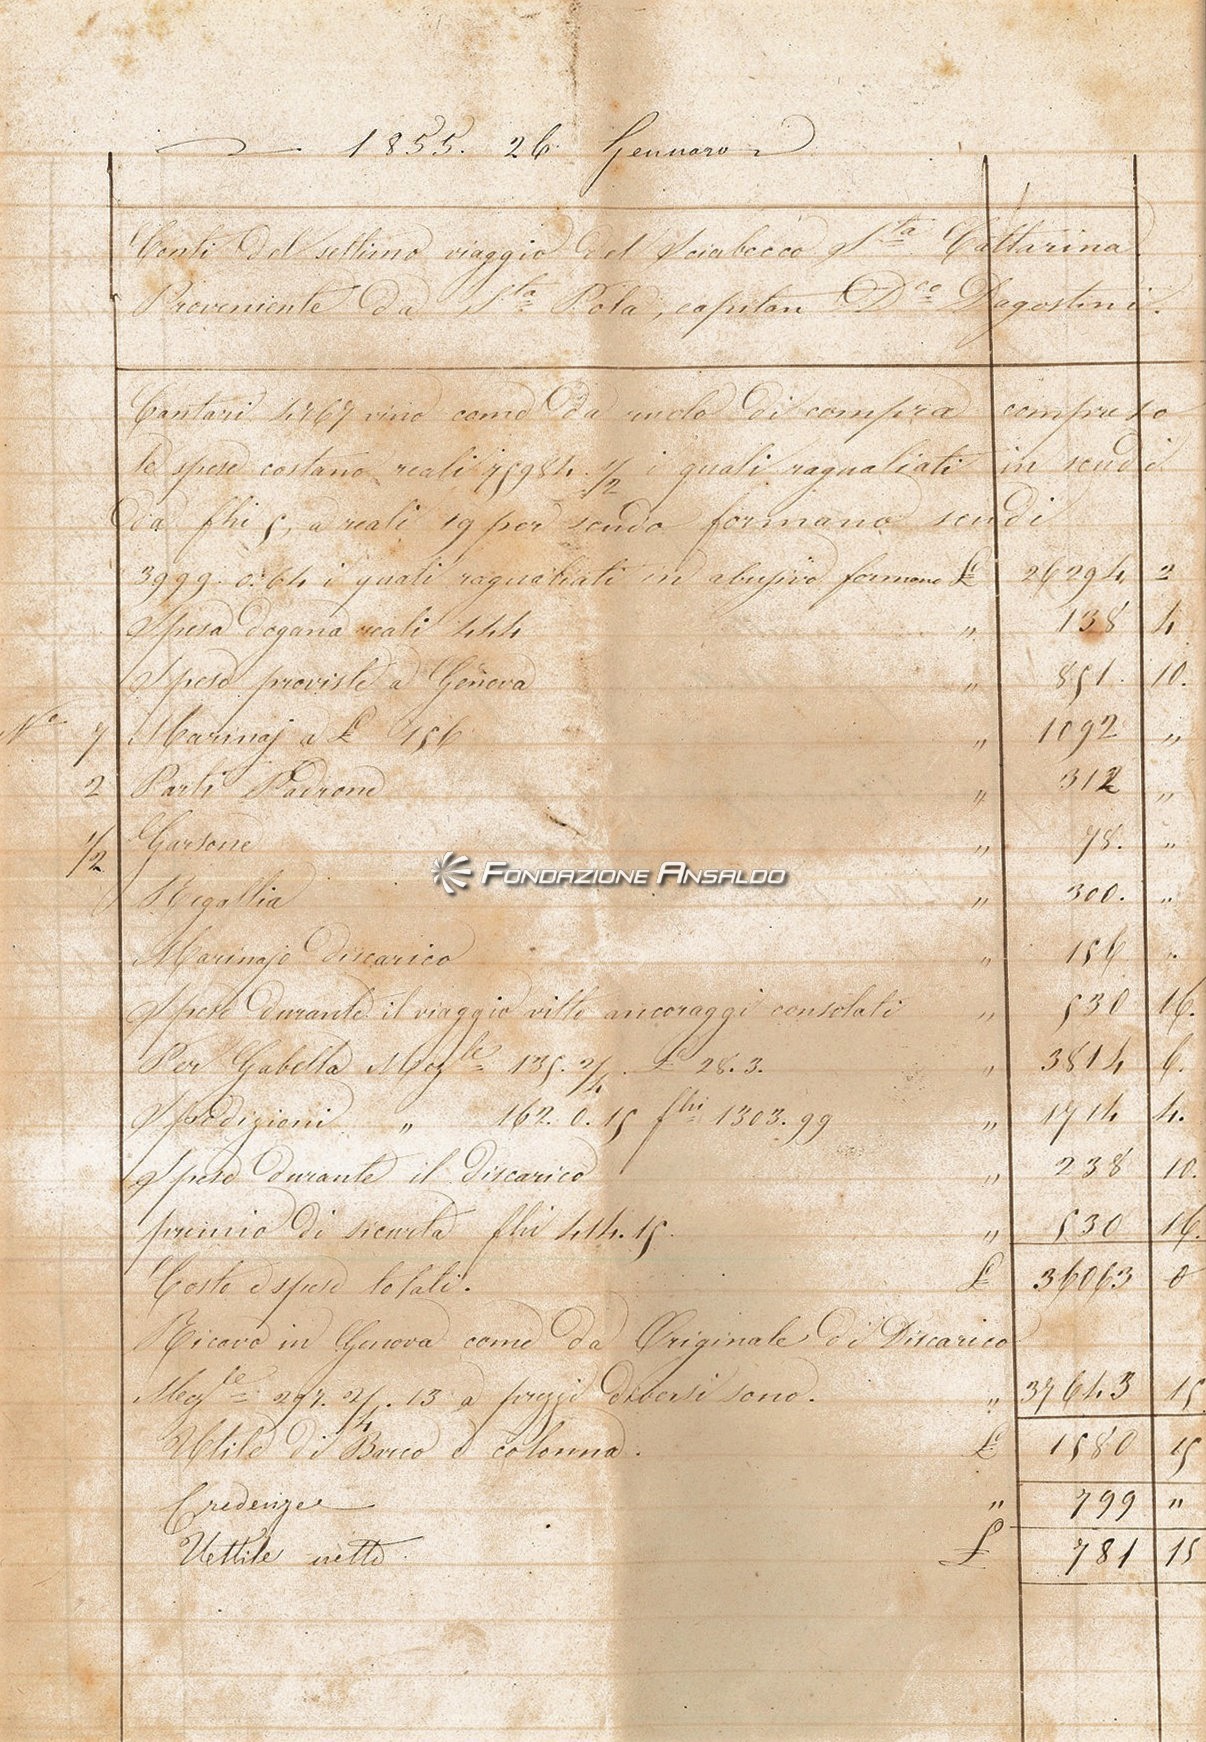 1855. 26 Gennaro
Conti del settimo viaggio del Sciabecco S.ta Cattarina
Proveniente da S.ta Pola, capitan D.co Dagostini.
Cantari 4767 vino come da nolo di compra compreso
le spese costano reali 75984. 1/2 i quali raguagliati in scudi
da fhi 5, a reali 19 per scudo formano scudi
3999. 0. 64 i quali raguagliati in abusivo formano £ 26294. 2
Spesa dogana reali 444 " 138 4
Spese proviste a Genova " 851. 10.
N.o 7 Marinaj a £ 156 " 1092 "
2 Parti Padrone " 312 "
1/2 Garsone " 78. "
Regallia " 300. "
Marinajo discarico " 156 "
Spese durante il viaggio vitto ancoraggi consolati " 530 16.
Per Gabella Mez.le 135. 2/4. £ 28. 3. " 3814 6.
Spedizioni " 162. 0. 15 fhi 1303. 99 " 1714 4.
Spese durante il discarico " 238 10.
premio di sicurtà fhi 414. 15. " 530 16.
Costo e spese totali. £ 36063 0
Ricavo in Genova come da Originale di Discarico
Mez.le 297. 2/4. 13 a prezzi diversi sono. " 37643 15
Utile di Barco e colonna. £ 1580 15
Credenze " 799 "
Uttile netto. £ 781 15
FONDAZIONE ANSALDO